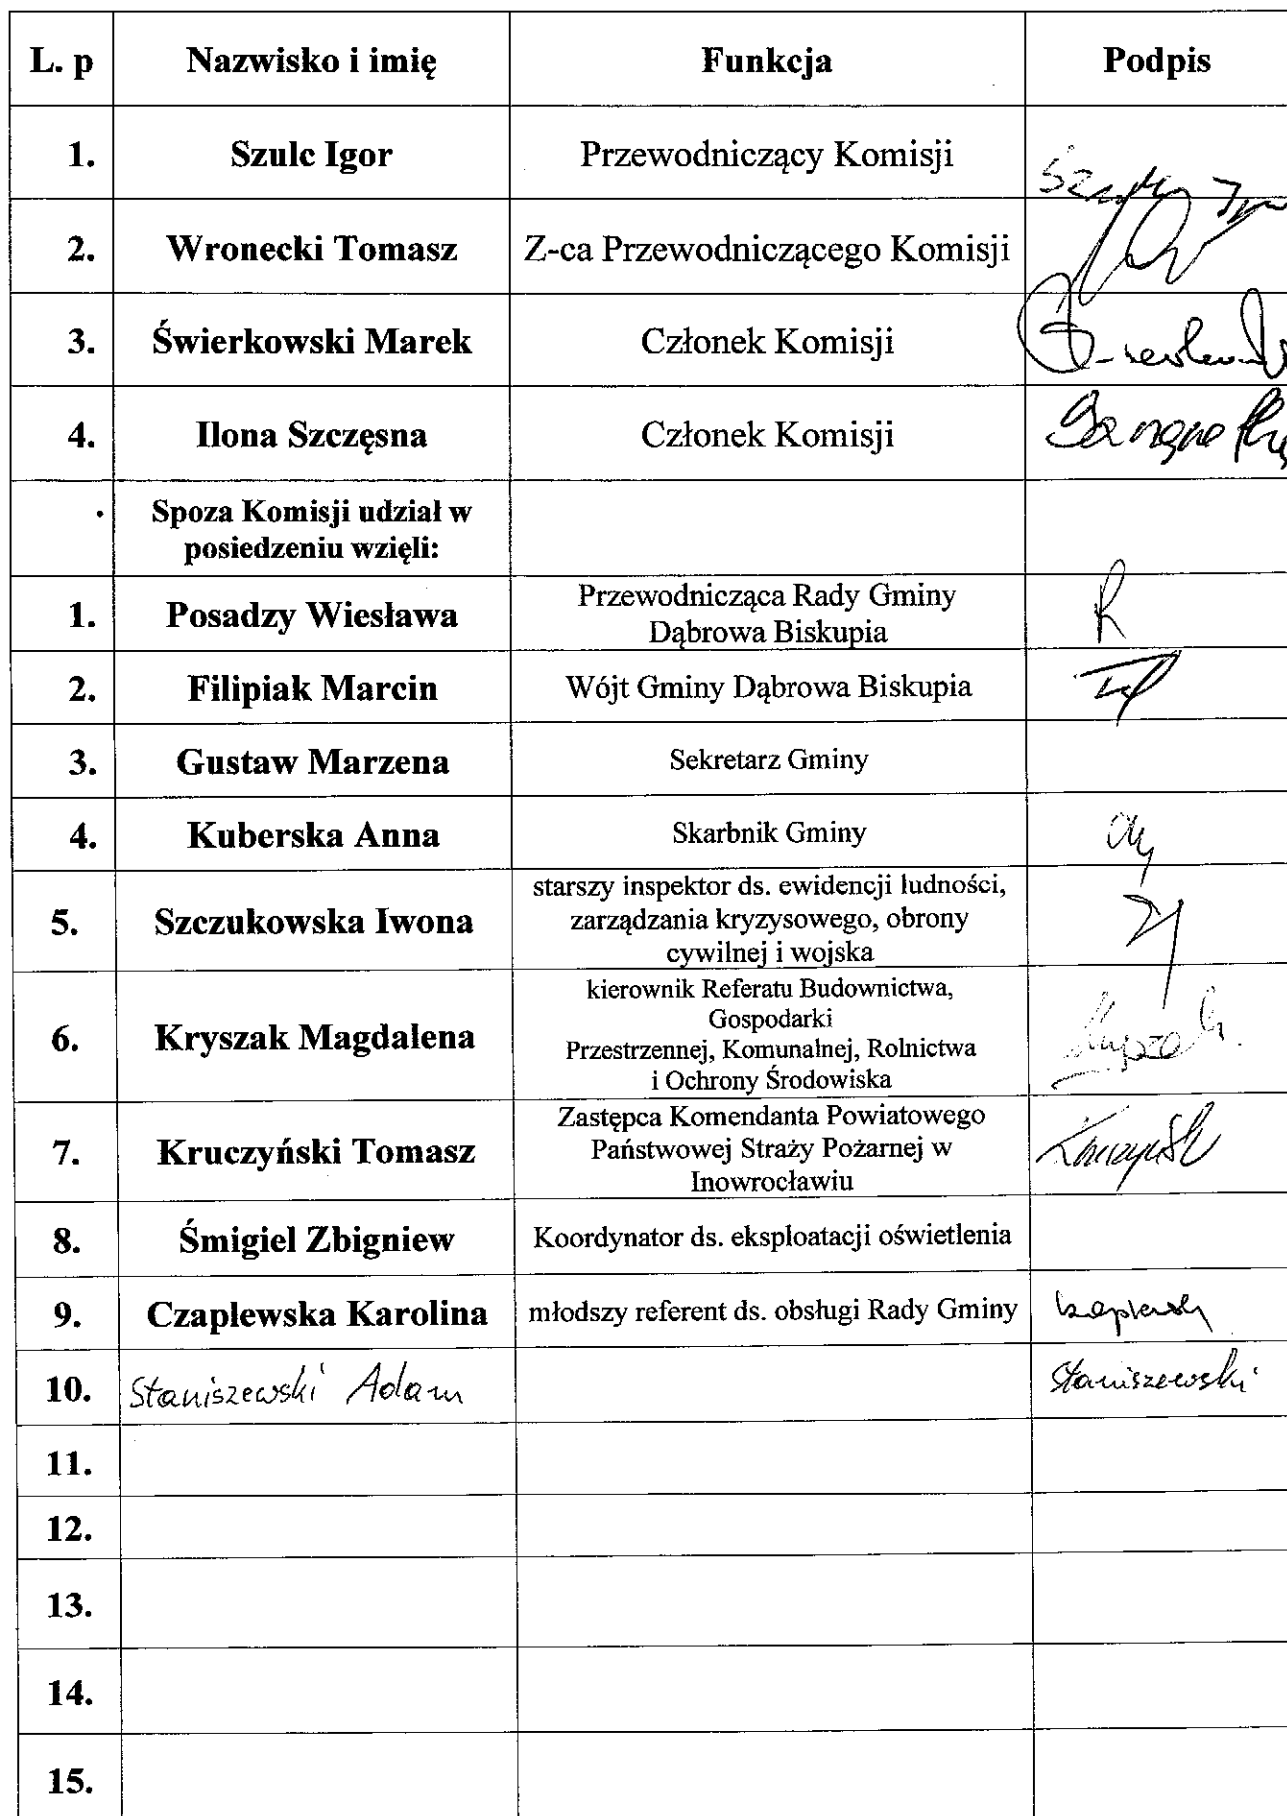 L. p Nazwisko i imię Funkcja Podpis
1. Szulc Igor Przewodniczący Komisji
2. Wronecki Tomasz Z-ca Przewodniczącego Komisji
3. Świerkowski Marek Członek Komisji
4. Ilona Szczęsna Członek Komisji
Spoza Komisji udział w
posiedzeniu wzięli:
1. Posadzy Wiesława Przewodnicząca Rady Gminy
Dąbrowa Biskupia
2. Filipiak Marcin Wójt Gminy Dąbrowa Biskupia
3. Gustaw Marzena Sekretarz Gminy
4. Kuberska Anna Skarbnik Gminy
5. Szczukowska Iwona starszy inspektor ds. ewidencji ludności,
zarządzania kryzysowego, obrony
cywilnej i wojska
6. Kryszak Magdalena kierownik Referatu Budownictwa,
Gospodarki
Przestrzennej, Komunalnej, Rolnictwa
i Ochrony Środowiska
7. Kruczyński Tomasz Zastępca Komendanta Powiatowego
Państwowej Straży Pożarnej w
Inowrocławiu
8. Śmigiel Zbigniew Koordynator ds. eksploatacji oświetlenia
9. Czaplewska Karolina młodszy referent ds. obsługi Rady Gminy
10. Staniszewski Adam Staniszewski
11.
12.
13.
14.
15.